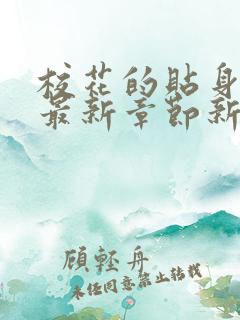 校花的贴身
最新章节新
顾轻舟
未经同意禁止转载